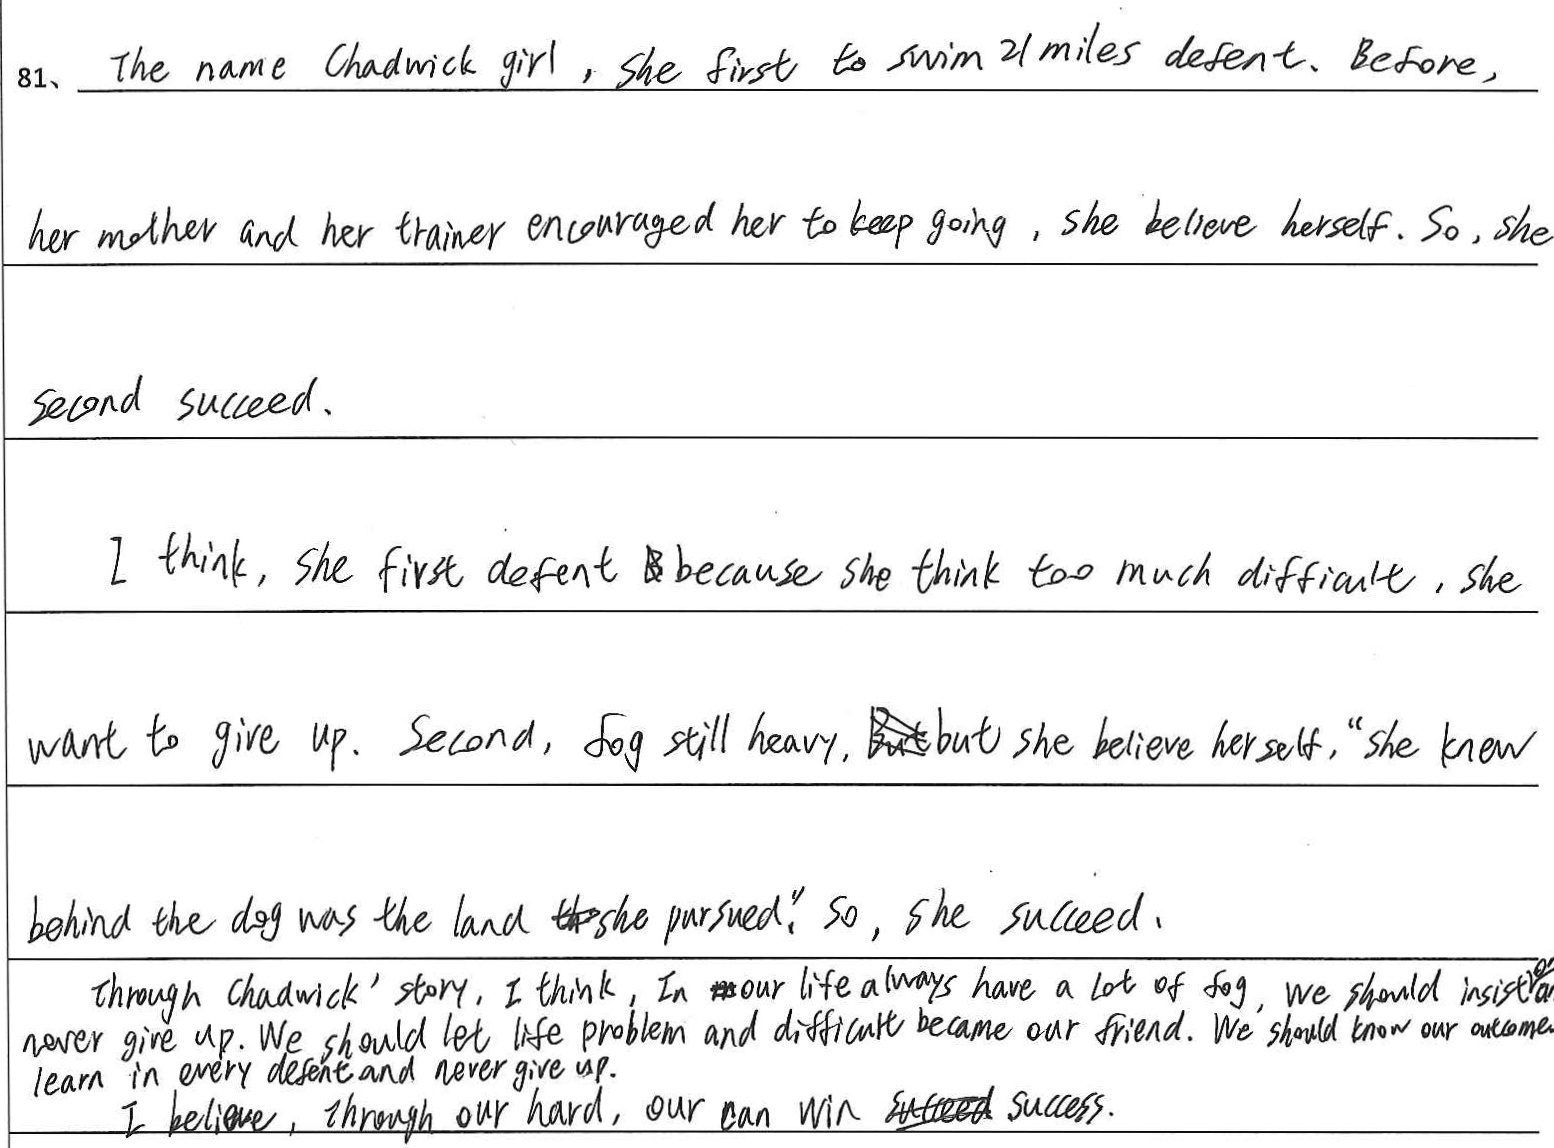 81、 The name Chadwick girl, she first to swim 21 miles defent. Before,
her mother and her trainer encouraged her to keep going, she believe herself. So, she
second succeed.
I think, she first defent because she think too much difficult, she
want to give up. Second, fog still heavy, but she believe herself, "she knew
behind the dog was the land she pursued." So, she succeed.
Through Chadwick' story, I think, In our life always have a lot of fog, we should insist
never give up. We should let life problem and difficult became our friend. We should know our outcome.
learn in every defent and never give up.
I believe, through our hard, our can win success.